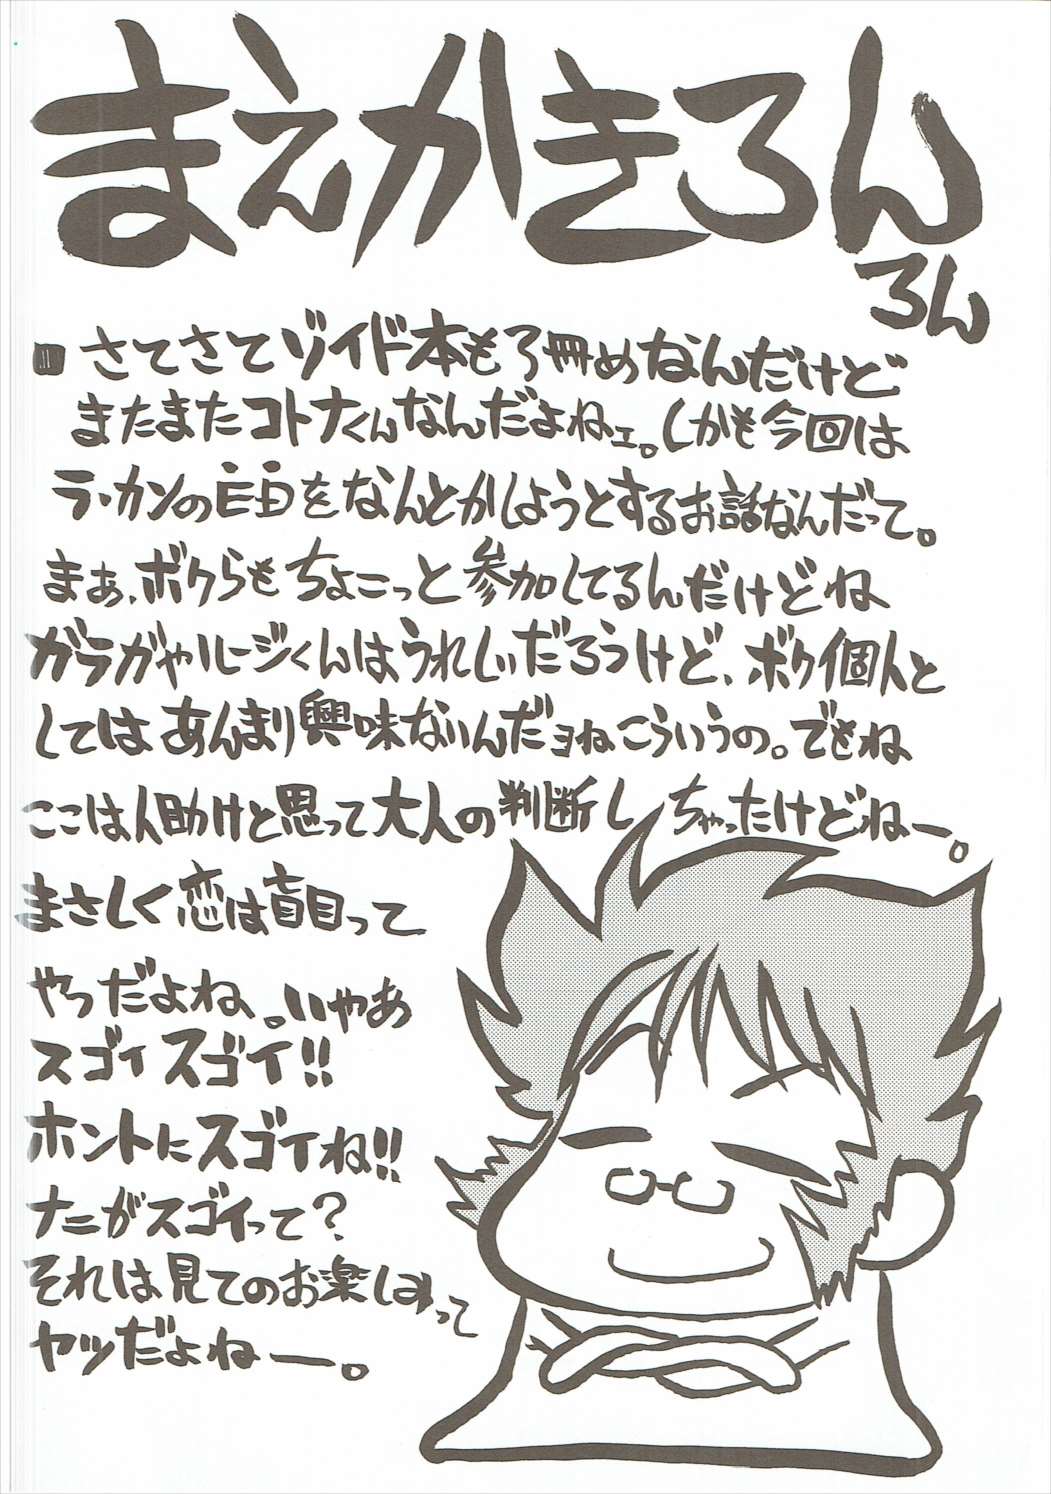 まえがきろん
ろん
■さてさてゾイド本も3冊めなんだけど
またまたコトナくんなんだよねェ。しかも今回は
ラ・カンのをなんとかしようとするお話なんだって。
まぁ、ボクらもちょこっと参加してるんだけどね
ガラガやルージくんはうれしいだろうけど、ボク個人と
してはあんまり興味ないんだョねこういうの。でもね
ここは人助けと思って大人の判断しちゃったけどねー。
まさしく恋は盲目って
やつだよね。いやぁ
スゴイスゴイ!!
ホントにスゴイね!!
ナニがスゴイって?
それは見てのお楽しみって
ヤツだよねー。